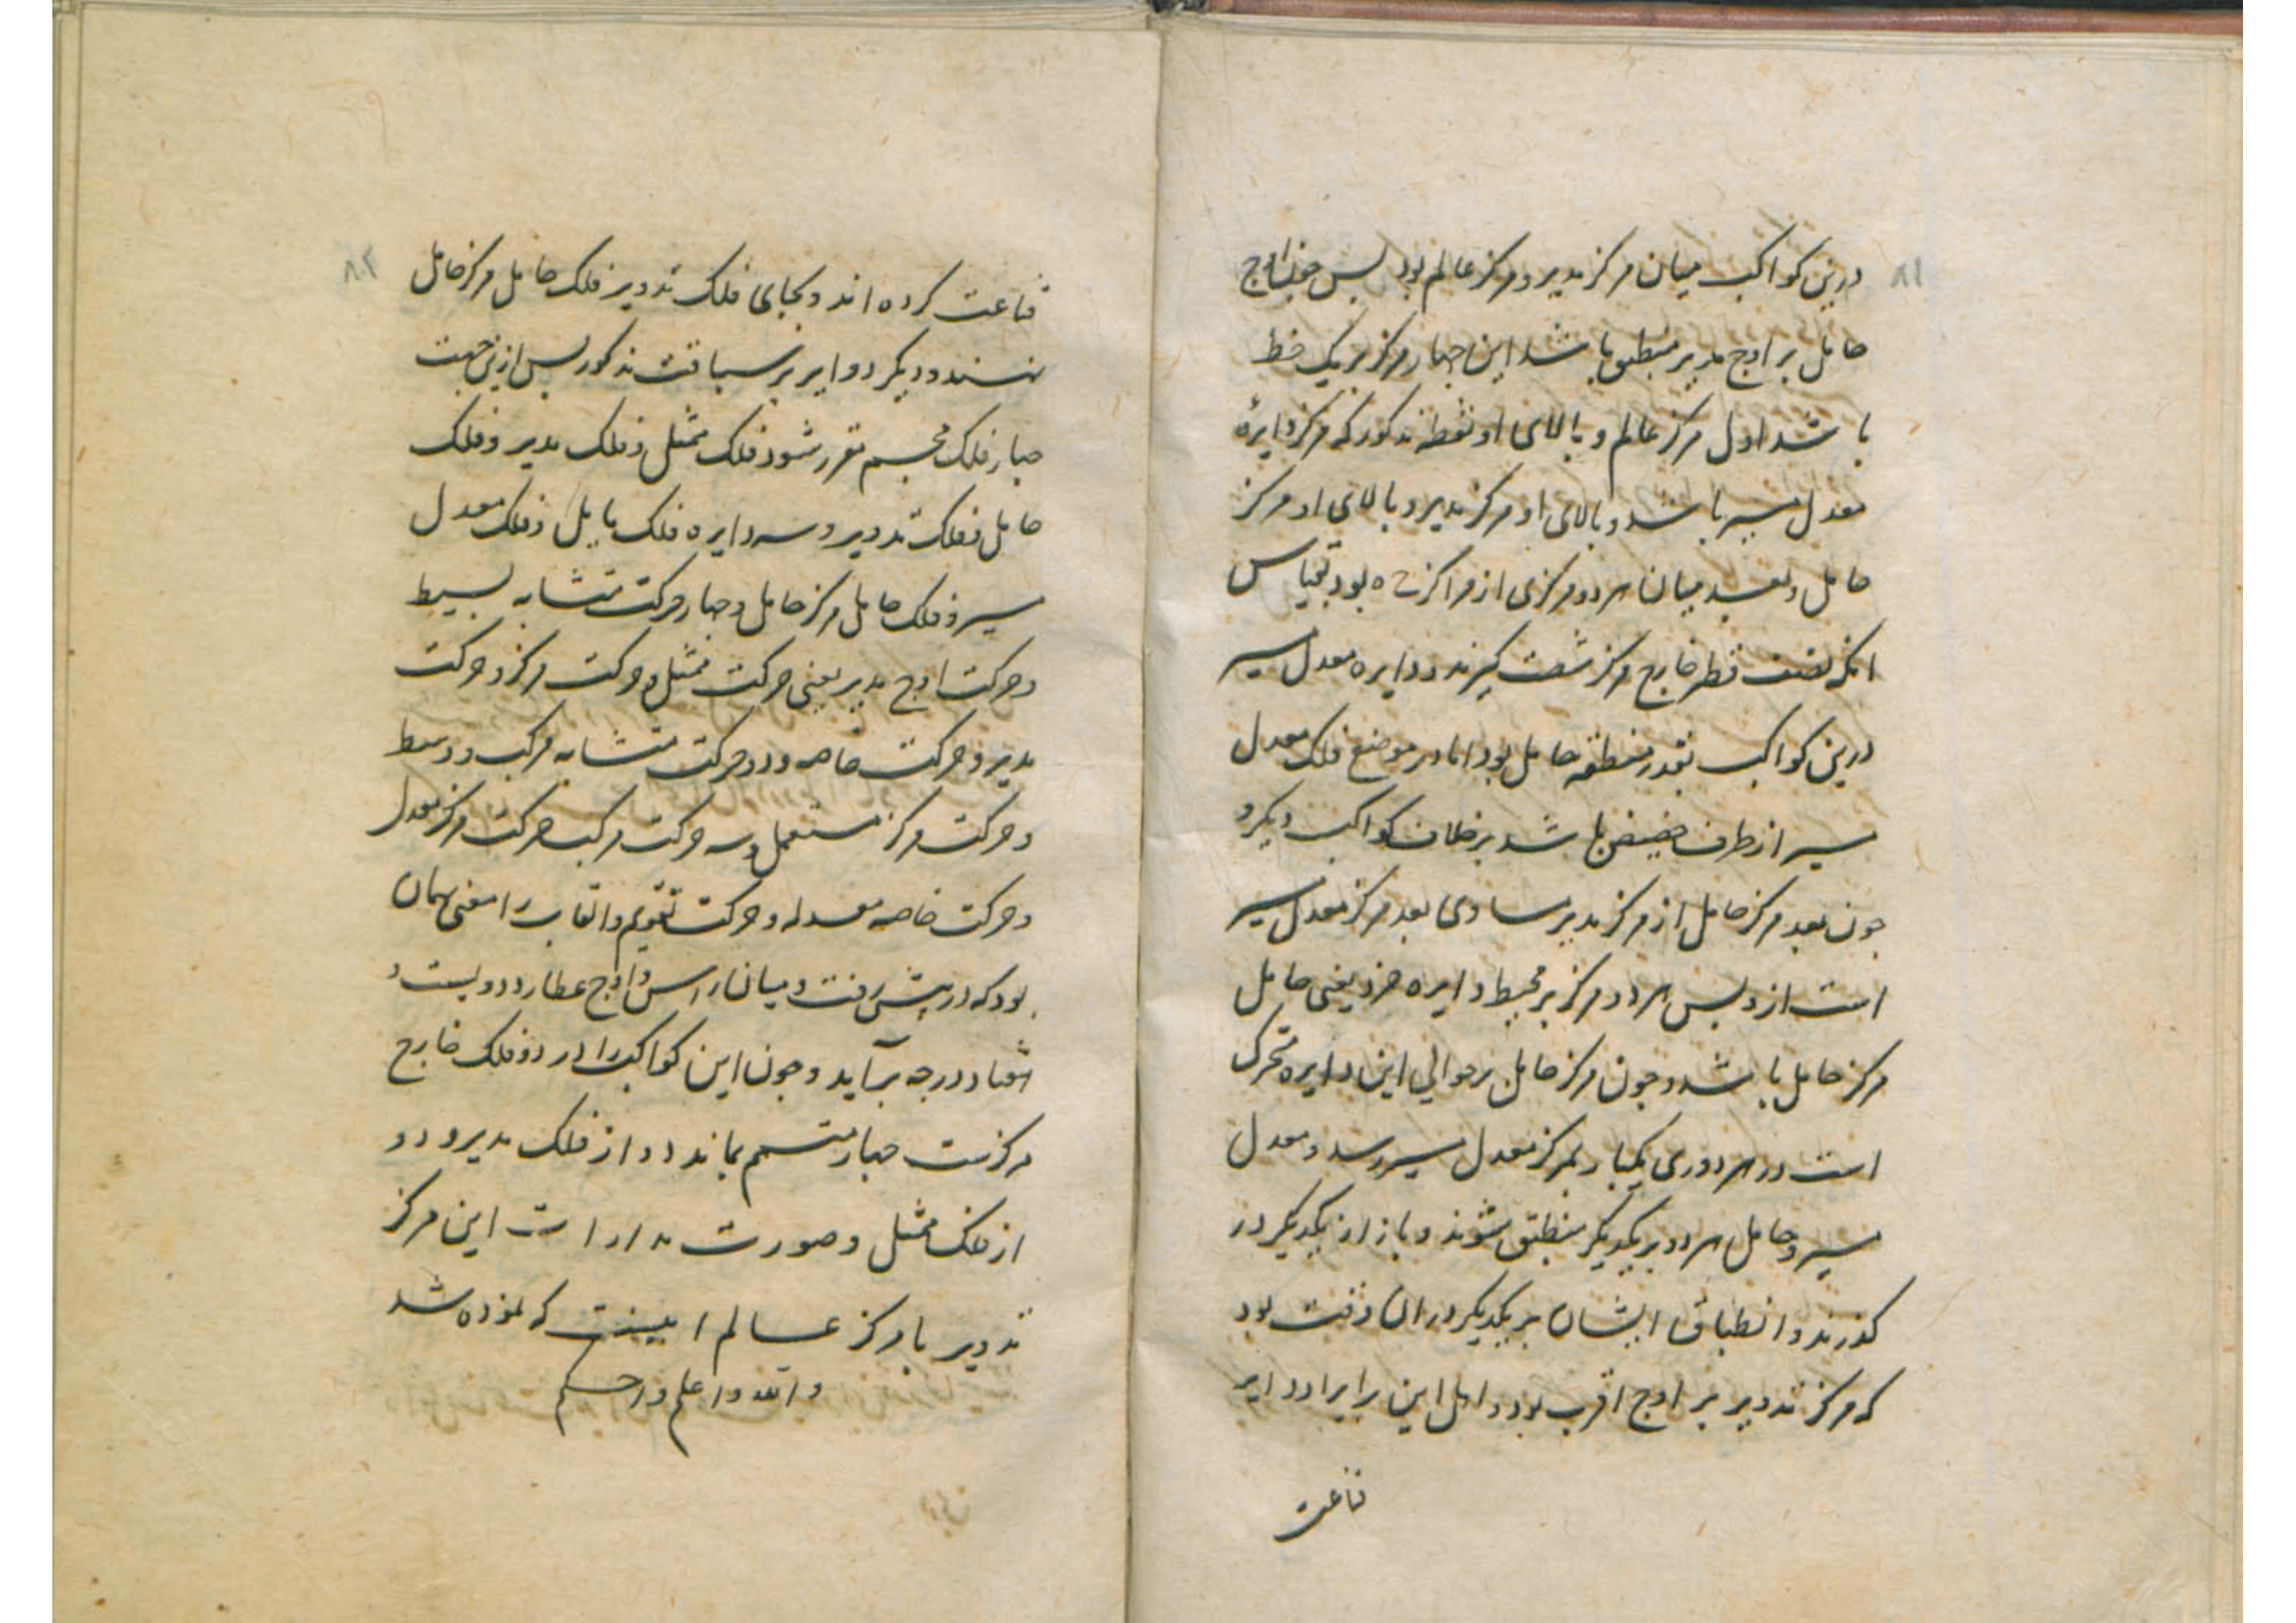 ۸۱
درین کواکب میان مرکز مدیر و مرکز عالم بود پس چون اوج
حامل بر اوج مدیر منطبق باشد این چهار مرکز بر یک خط
باشد اول مرکز عالم و بالای او نقطه مذکور که مرکز دایرهٔ
معدل مسیر باشد و بالای او مرکز مدیر و بالای او مرکز
حامل و بعد میان هر دو مرکزی از مراکز ح ه بود بقیاس
انکه نصف قطر خارج مرکز شصت کیرند و دایره معدل مسیر
درین کواکب بقدر منطقه حامل بود اما در موضع فلک معدل
مسیر از طرف حضیض باشد بر خلاف کواکب دیکر و
چون بعد مرکز حامل از مرکز مدیر مساوی بعد مرکز معدل مسیر
است ازو پس هر دو مرکز بر محیط دایره خرد یعنی حامل
مرکز حامل باشد و چون مرکز حامل بر حوالی این دایره متحرک
است در هر دوری یکبار بمرکز معدل مسیر رسد و معدل
مسیر و حامل هر دو بر یکدیکر منطبق شوند و باز از یکدیکر در
کذرند و انطباق ایشان بر یکدیکر در ان وقت بود
که مرکز تدویر بر اوج اقرب بود و اهل این را بر ایراد دوایر
قناعت
۸۲
قناعت کرده اند و بجای فلک تدویر فلک حامل مرکز حامل
نهند و دیکر دوایر بر سیاقت مذکور پس ازین جهت
چهار فلک مجسم مقرر شود فلک ممثل و فلک مدیر و فلک
حامل و فلک تدویر و سه دایره فلک مایل و فلک معدل
مسیر و فلک حامل مرکز حامل و چهار حرکت متشابه بسیط
و حرکت اوج مدیر یعنی حرکت ممثل و حرکت مرکز و حرکت
مدیر و حرکت خاصه و دو حرکت متشابه مرکب و وسط
و حرکت مرکز مستعمل و سه حرکت مرکب حرکت مرکز معدل
و حرکت خاصه معدله و حرکت تقویم و القاب را معنی همان
بود که در پیش رفت و میان راس و اوج عطارد دویست و
هفتاد درجه برآید و چون این کواکب را در دو فلک خارج
مرکزست چهار متمم بماند دو از فلک مدیر و دو
از فلک ممثل و صورت مدارات این مرکز
تدویر با مرکز عالم اینست که نموده شد
والله و اعلم و احکم